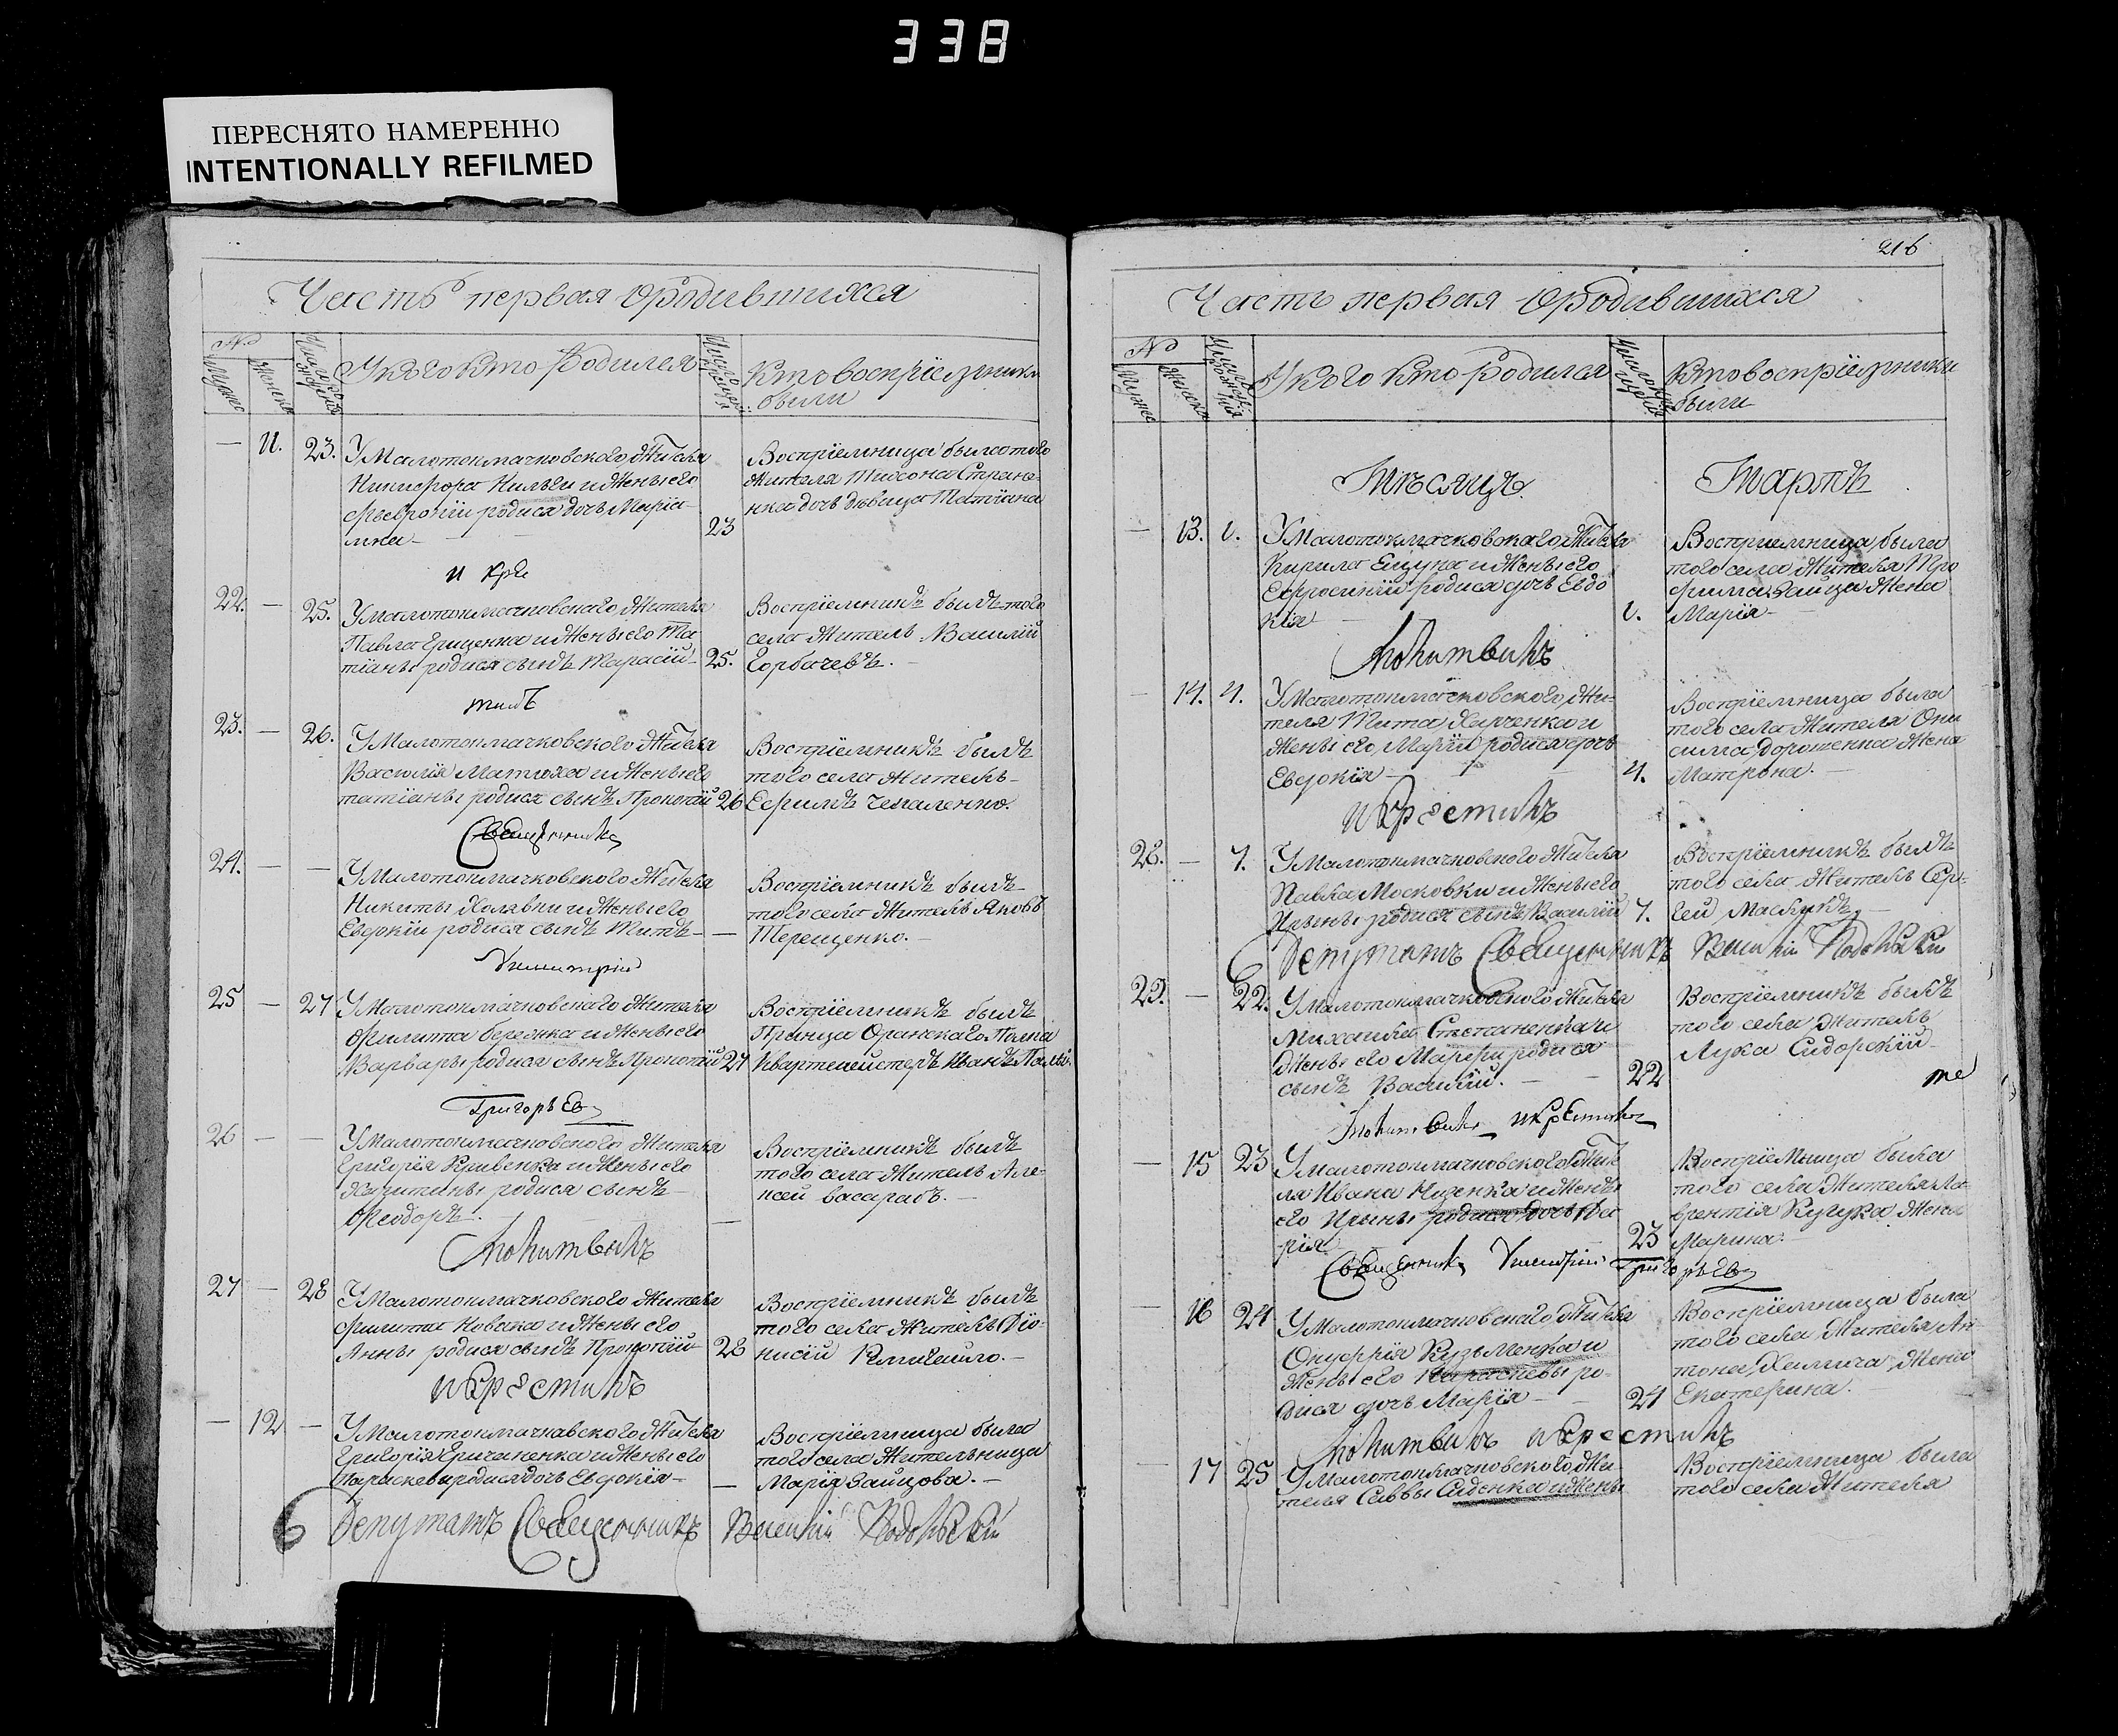 338
ПЕРЕСНЯТО НАМЕРЕННО
INTENTIONALLY REFILMED
Часть первая ородившихся
№
Мужес
Женска
Число рожденія
У кого кто родился
Число крещенія
Кто воспріемники
были
— 11. 23. У Малотокмачковскаго Жителя
Никифора Кильчи и Жены его
Февроніи родися дочь Маріа-
мна —
23
Воспріемница была того
Жителя Тидсона Страно-
нка дочь дѣвица Татіана
и кре
22. — 25. У Малотокмачковскаго Жителя
Павла Гриценка и Жены его Та
тіаны родися сынъ Тарасій — 25.
Воспріемникъ былъ того
села Житель Василій
Горбачевъ. —
тилъ
23. — 26. У Малотокмачковскаго Жителя
Василія Матюха и Жены его
татіаны родися сынъ Прокопій 26
Воспріемникъ былъ
того села Житель —
Ефимъ Чемаленко.
Священникъ
24. — — У Малотокмачковскаго Жителя
Никиты Холявки и Жены его
Евдокіи родися сынъ Титъ — —
Воспріемникъ былъ
того села Житель Яковъ
Терещенко. —
Димитрій
25 — 27 У Малотокмачковскаго Жителя
Филиппа Береика и Жены его
Варвары родися сынъ Прокопій 27
Воспріемникъ былъ
Принца Оранскаго Полка
Квартемейстеръ Иванъ
Григорьевъ
26 — — У Малотокмачковскаго Жителя
Григорія Кривенка и Жены его
Харитины родися сынъ —
Ѳеодоръ. —
Воспріемникъ былъ
того села Житель Але-
ксѣй Басарабъ. —
Молитвилъ
27 — 28 У Малотокмачковскаго Жителя
Филиппа Новака и Жены его
Анны родися сынъ Прокопій — 28
Воспріемникъ былъ
того села Житель Діо-
нисій Кемигайло. —
и крестилъ
— 12 — У Малотокмачковскаго Жителя
Григорія Гричаненка и Жены его
Параскеви родися дочь Евдокія —
Воспріемница была
того села Жительница
Марія Зайцова. —
Депутатъ Священникъ Василій Подольскій
216
Часть первая ородившихся
№
Мужес
Женска
Число рожденія
У кого кто родился
Число крещенія
Кто воспріемники
были
Мѣсяцъ Мартъ
— 13. 1. У Малотокмачковскаго Жителя
Кирила Ещука и Жены его
Ефросиніи родися дочь Евдо
кія — 1.
Воспріемница была
того села Жителя Тро
фима Зайца Жена
Марія —
Молитвилъ
— 14. 4. У Малотокмачковскаго Жи-
теля Тита Харченка и
Жены его Маріи родися дочь
Евдокія — 4.
Воспріемница была
того села Жителя Они
сима Дорошенка Жена
Матрона. —
и крестилъ
28. — 7. У Малотокмачковскаго Жителя
Павла Московки и Жены его
Ирины родися сынъ Василій 7.
Воспріемникъ былъ
того села Житель Сер-
гей Масликъ —
Депутатъ Священникъ Василій Подольскій
29. — 22. У Малотокмачковскаго Жителя
Михаила Степаненка и
Жены его Марфи родися
сынъ Василій. — 22
Воспріемникъ былъ
того села Житель
Лука Сидорскій —
Молитвилъ и крестилъ
— 15 23 У Малотокмачковскаго Жите
ля Ивана Ищенка и Жены
его Ирины родися дочь Да
рія 23
Воспріемница была
того села Жителя Ла-
врентія Кущука Жена
Марина. —
Священникъ Димитрій Григорьевъ
— 16 24 У Малотокмачковскаго Жителя
Онуфрія Кузьменка и
Жены его Параскевы ро-
дися дочь Марія — 24
Воспріемница была
того села Жителя Ан
тона Хилмича Жена
Екатерина. —
Молитвилъ и крестилъ
— 17 25 У Малотокмачковскаго Жи-
теля Саввы Сиденка и Жены
Воспріемница была
того села Жителя